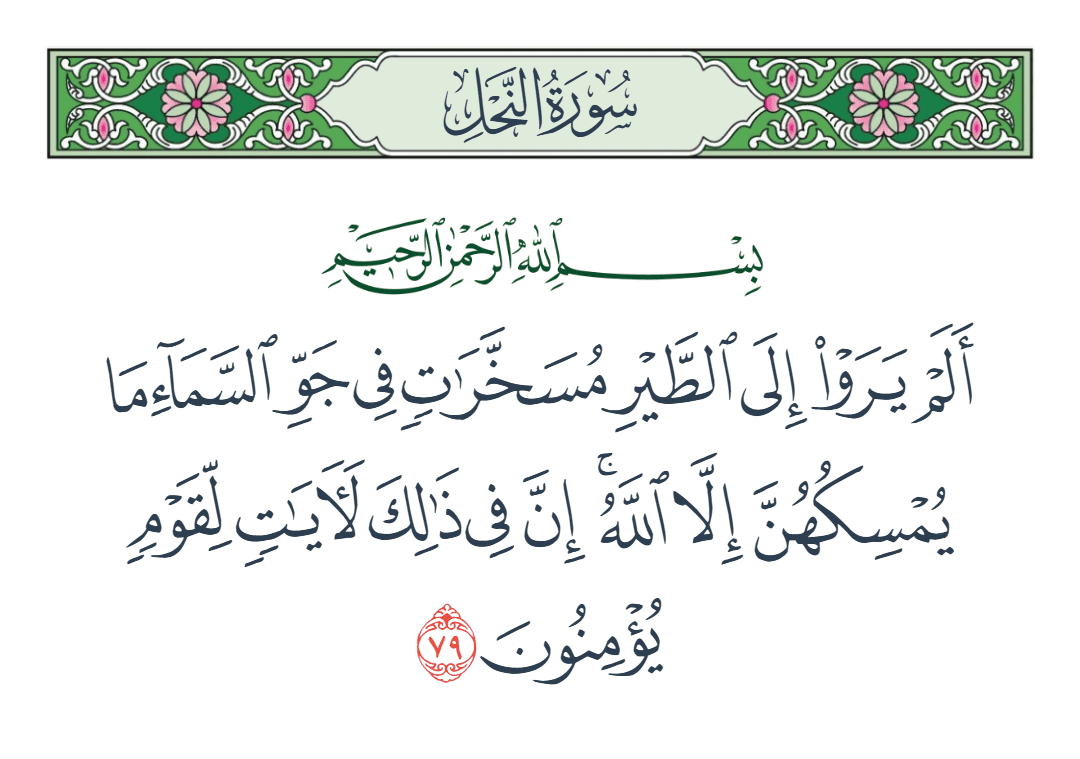 سُورَةُ النَّحْلِ
بِسْمِ ٱللَّهِ ٱلرَّحْمَٰنِ ٱلرَّحِيمِ
أَلَمْ يَرَوْا۟ إِلَى ٱلطَّيْرِ مُسَخَّرَٰتٍ فِى جَوِّ ٱلسَّمَآءِ مَا
يُمْسِكُهُنَّ إِلَّا ٱللَّهُ ۚ إِنَّ فِى ذَٰلِكَ لَـَٔايَـٰتٍ لِّقَوْمٍ
يُؤْمِنُونَ ٧٩